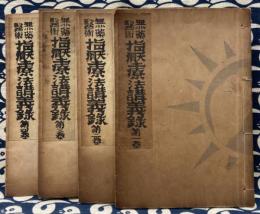 無藥
醫術
指壓療法講義録
第一巻
無藥
醫術
指壓療法講義録
第二巻
無藥
醫術
指壓療法講義録
第三巻
無藥
醫術
指壓療法講義録